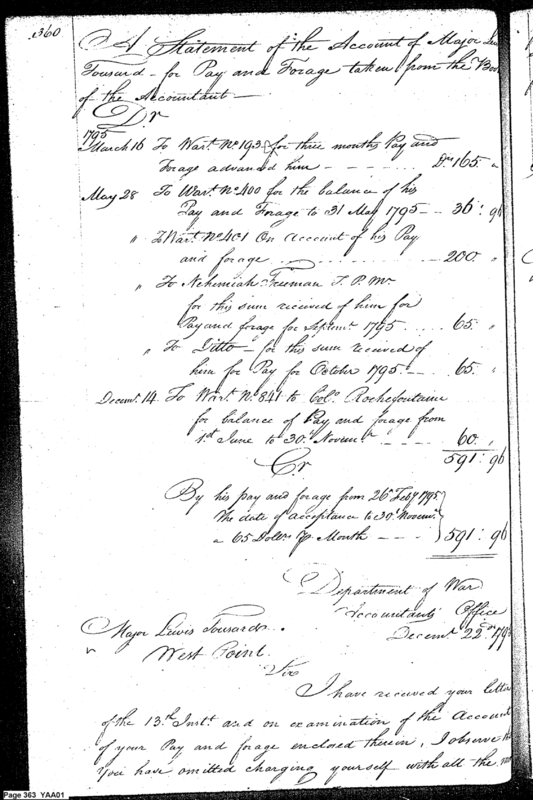 360
A Statement of the Account of Major
Tousard - for Pay and Forage taken from the
of the Accountant -
Dr
1795
March 16 To Wart. No. 193 for three months Pay and
Forage advanced him - - - - - - Drs. 165. "
May 28 To Wart. No. 400 for the balance of his
Pay and Forage to 31 May 1795 - - 36: 96
" To Wart. No. 401 On Account of his Pay
and forage . . . . . . . 200. "
" To Nehemiah Freeman T. P. Mr.
for this sum received of him for
Pay and forage for Septemr. 1795 . . . . 65 "
" To Ditto - for this sum received of
him for Pay for October 1795 - - - 65. "
Decemr. 14. To Wart. No. 841 to Colo. Rochefontaine
for balance of Pay and forage from
1st June to 30. Novemr. - - - - 60. "
591: 96
Cr
By his pay and forage from 26 Feby 1795
the date of acceptance to 30 Novemr.
a 65 Dolrs. Month - - - 591: 96
Department of War
Accountants Office
Decemr. 22nd
Major Lewis Tousard.
West Point.
Sir
I have received your letter
of the 13th Inst. and on examination of the Account
of your Pay and forage enclosed therein, I observe
You have omitted charging yourself with all the
Page 363 YAA01